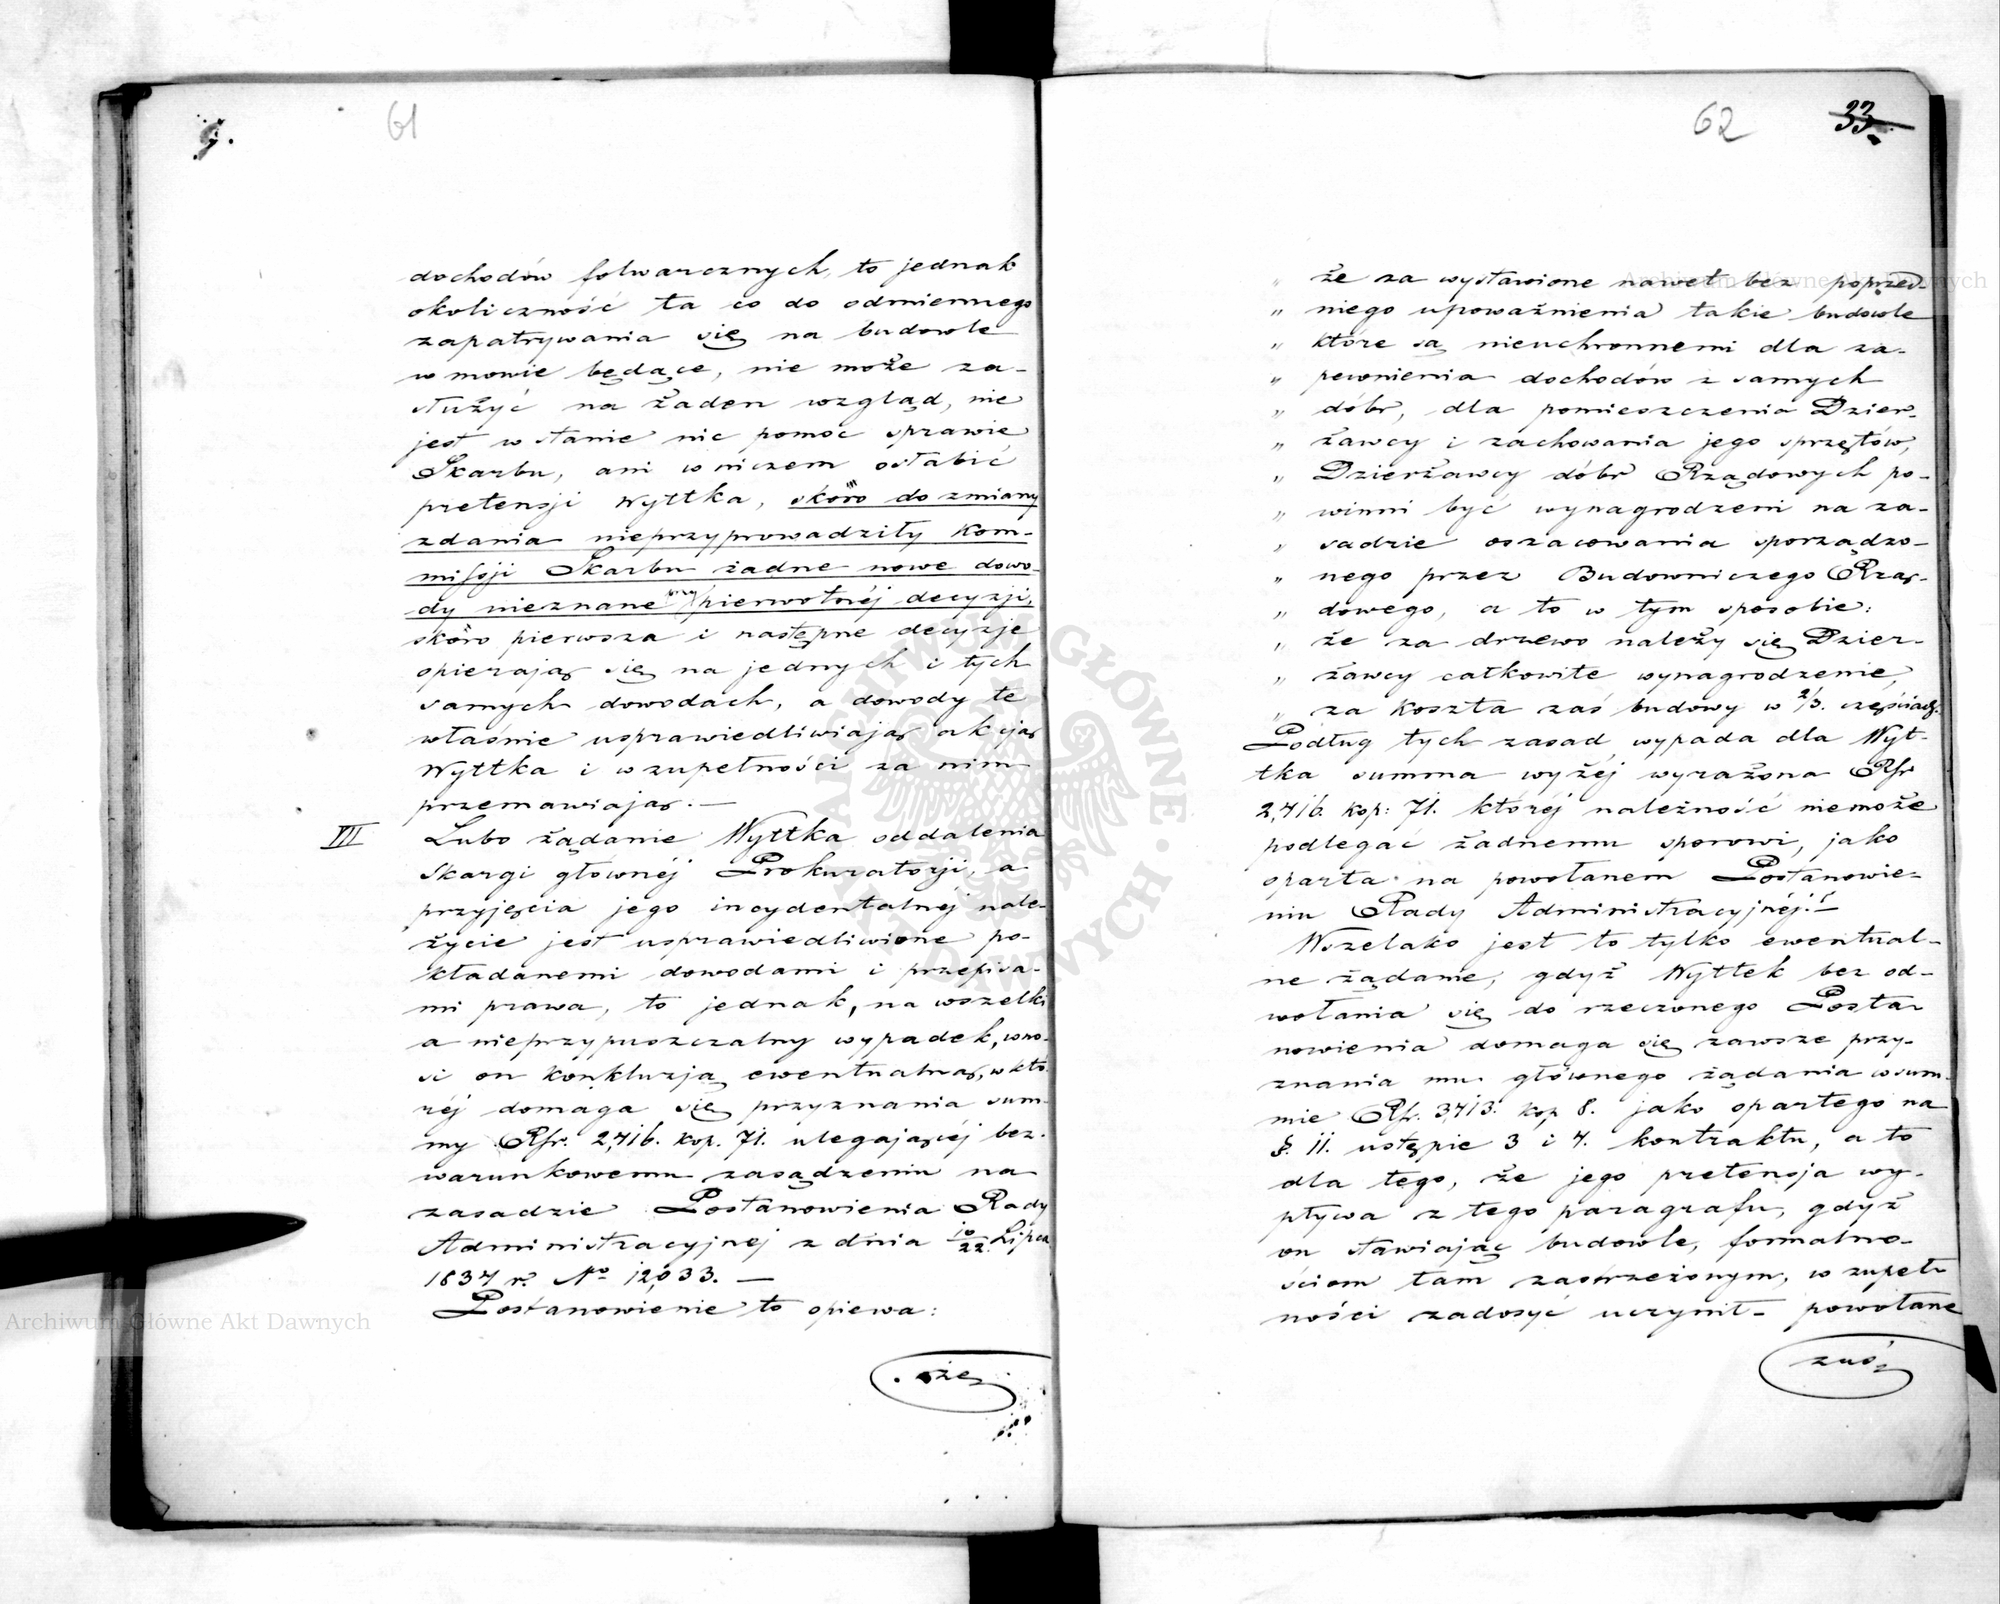 61
dochodów folwarcznych, to jednak
okoliczność ta co do odmiennego
zapatrywania się na budowle
w mowie będące, nie może za-
służyć na żaden wzgląd, nie
jest w stanie nic pomóc sprawie
Skarbu, ani w niczem osłabić
pretensji Wyttka, skoro do zmiany
zdania nieprzyprowadziły Kom-
missji Skarbu żadne nowe dowo-
dy nieznane przy pierwotnéj decyzji,
skoro pierwsza i następne decyzje
opierają się na jednych i tych
samych dowodach, a dowody te
właśnie usprawiedliwiają akcją
Wyttka i w zupełności za nim
przemawiają. —
VII Lubo żądanie Wyttka oddalenia
Skargi głównéj Prokuratorji, a
przyjęcia jego incydentalnéj nale-
życie jest usprawiedliwione po-
kładanemi dowodami i przepisa-
mi prawa, to jednak, na wszelki
a nieprzypuszczalny wypadek, wno-
si on konkluzją ewentualną, w któ-
réj domaga się przyznania sum-
my Rsr. 2,416. kop. 71. ulegającéj bez-
warunkowemu zasądzeniu na
zasadzie Postanowienia Rady
Administracyjnej z dnia 10/22 Lipca
1837 r. No 12,033. —
Postanowienie to opiewa:
„że
62 33
„ że za wystawione nawet bez poprzed-
„ niego upoważnienia takie budowle
„ które są nieuchronnemi dla za-
„ pewnienia dochodów z samych
„ dóbr, dla pomieszczenia Dzier-
„ żawcy i zachowania jego sprzętów,
„ Dzierżawcy dóbr Rządowych po-
„ winni być wynagrodzeni na za-
„ sadzie oszacowania sporządzo-
„ nego przez Budowniczego Rzą-
„ dowego, a to w tym sposobie:
„ że za drzewo należy się Dzier-
„ żawcy całkowite wynagrodzenie,
„ za koszta zaś budowy w 2/3. częściach.
Podług tych zasad wypada dla Wyt-
tka summa wyżéj wyrażona Rsr
2,416. kop: 71. któréj należność niemoże
podlegać żadnemu sporowi, jako
oparta na powołanem Postanowie-
niu Rady Administracyjnéj. —
Wszelako jest to tylko ewentual-
ne żądanie, gdyż Wyttek bez od-
wołania się do rzeczonego Posta-
nowienia domaga się zawsze przy-
znania mu głównego żądania w sum-
mie Rsr. 3413. kop 8. jako opartego na
§. 11. ustępie 3 i 4. kontraktu, a to
dla tego, że jego pretensja wy-
pływa z tego paragrafu, gdyż
on stawiając budowle, formalno-
ściom tam zastrzeżonym, w zupeł-
ności zadosyć uczynił_ powołane
zaś
Archiwum Główne Akt Dawnych
Archiwum Główne Akt Dawnych
ARCHIWUM GŁÓWNE AKT DAWNYCH